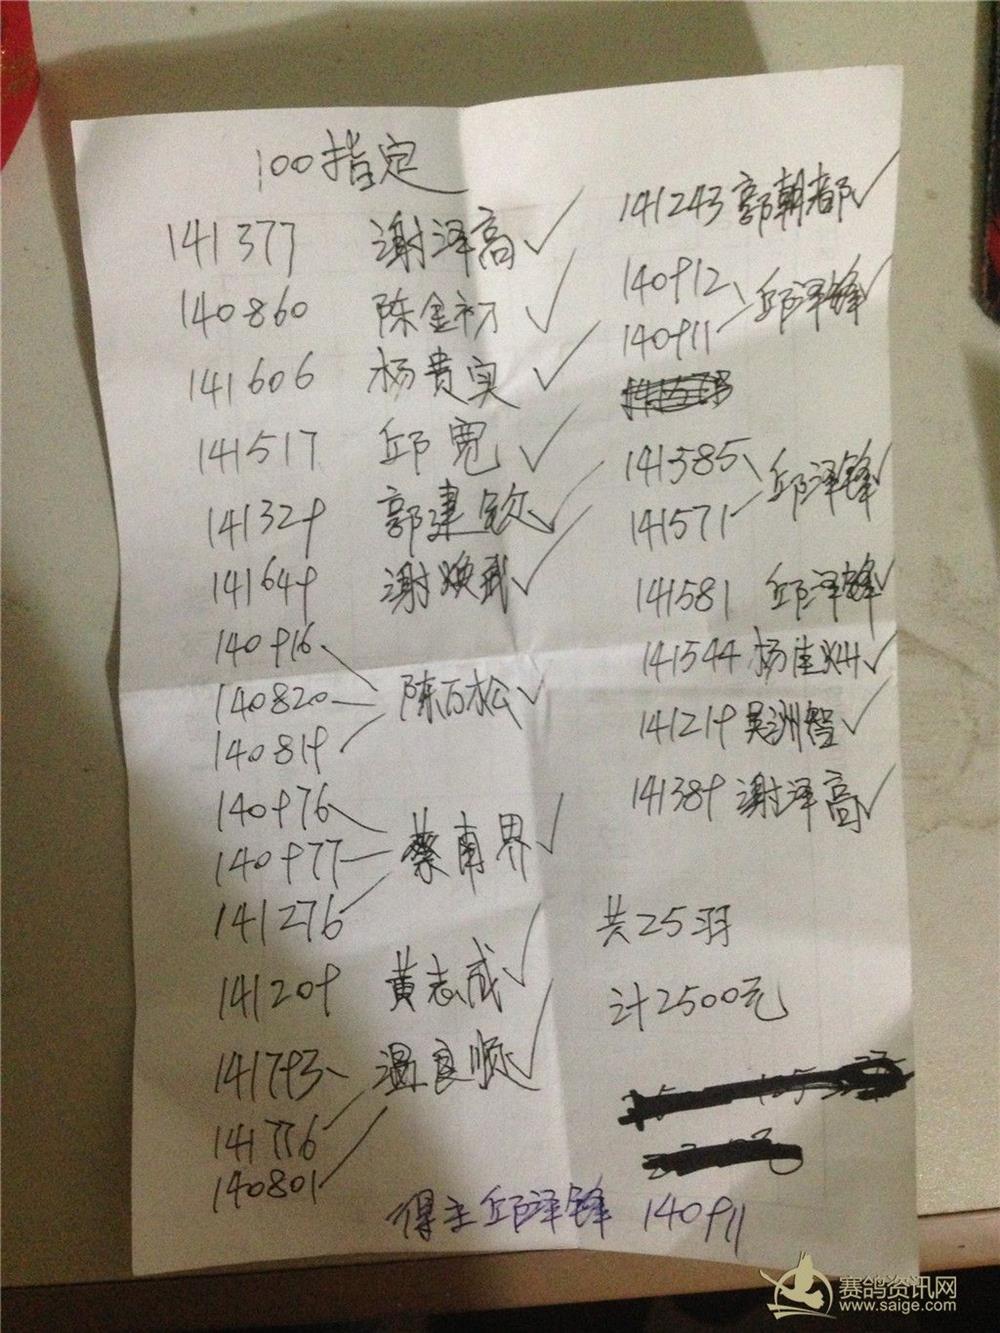 100指定
141377 谢泽高✓
140860 陈金初✓
141606 杨贵实✓
141517 邱宽✓
141329 郭建钦✓
141649 谢焕武✓
140916
140820 陈万松✓
140819
140976
140977 蔡南界✓
141276
141209 黄志成✓
141793 温良顺✓
141776
140801
141243 郭朝都✓
140912 邱泽锋✓
140911
141585 邱泽锋✓
141571
141581 邱泽锋✓
141544 杨佳✓
141219 吴洲智✓
141389 谢泽高✓
共25羽
计2500元
得主邱泽锋 140911
赛鸽资讯网
www.saige.com